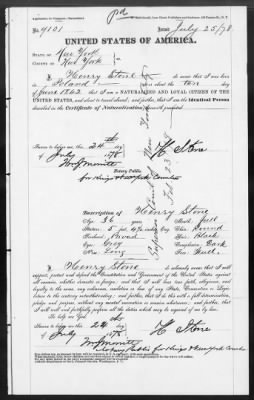 pd
No 9101 Issued July 25/78
UNITED STATES OF AMERICA.
STATE OF New York
COUNTY OF New York
I, Henry Stone do swear that I was born
in Poland on or about the ten day
of June 1842 that I am a NATURALIZED AND LOYAL CITIZEN OF THE
UNITED STATES, and about to travel abroad; and further, that I am the Identical Person
described in the Certificate of Naturalization
Sworn to before me this 24 day
of July 1878
H Stone
Notary Public
for Kings & New York Counties
Description of Henry Stone
Age: 36 years
Mouth: full
Stature: 5 feet 4 3/4 inches, Eng.
Chin: Round
Forehead: Broad
Hair: Black
Eyes: Grey
Complexion: Dark
Nose: Long
Face: Full
I, Henry Stone do solemnly swear that I will
support, protect and defend the Constitution and Government of the United States against
all enemies, whether domestic or foreign; and that I will bear true faith, allegiance, and
loyalty to the same, any ordinance, resolution or law of any State, Convention or Legis-
lature to the contrary notwithstanding; and further, that I do this with a full determination,
pledge and purpose, without any mental reservation or evasion whatsoever; and further, that
I will well and faithfully perform all the duties which may be required of me by law.
So help me God.
Sworn to before me this 24 day
of July 1878
H Stone
Notary Public for Kings & New York Counties